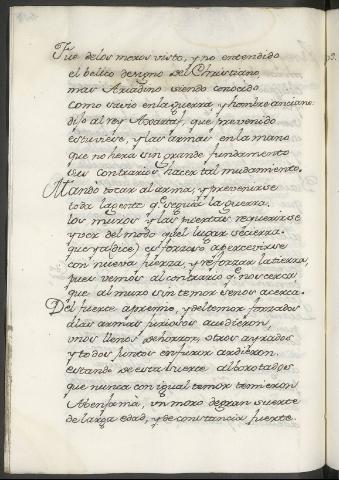 Fue delos moros visto, y no entendido
el belico designo del Christiano,
mas Ariadino siendo conocido
como savio en la guerra, y hombre anciano:
dijo al rey Acatas, que prevenido
estuviese, y las armas en la mano
que no hera sin grande fundamento
sus contrarios hacer tal mudamiento.
Mando tocar al arma, y prevenirse
toda la gente q̃ seguia la guerra,
los muros y las puertas requerirse
y ver del modo quel lugar se cierra.
que ya (dice) es forzoso apercevirse
con nueva fuerza, y reforzar la tierra,
pues vemos al contrario q̃ nos cerca
que al muro sin temor se nos acerca.
Del fuerte apremio, y del temor forzados
alas armas furiosos acudieron,
unos llenos de horror, otros ayrados
y todos juntos en furor ardieron.
estando de esta suerte alborotados
que nunca con igual temor temieron
Abenfamà, un moro de gran suerte
de larga edad, y de constancia fuerte.